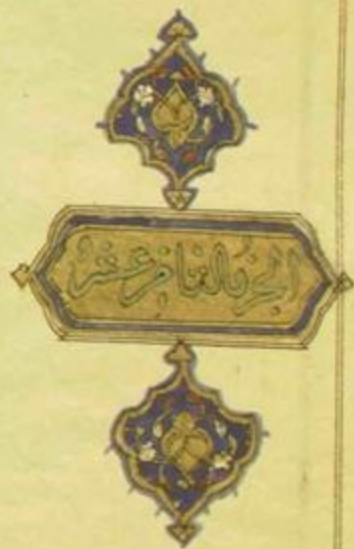 الجزؤ الثامن عشر